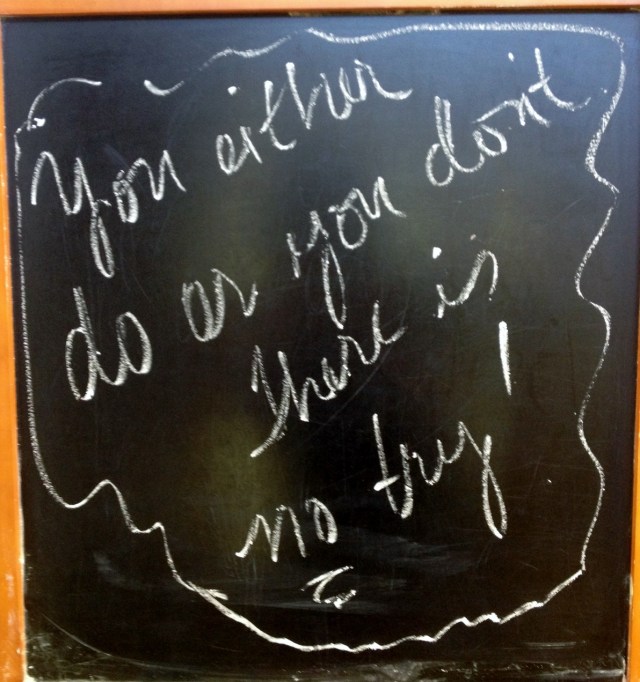 You either
do or you don't
There is
no try!